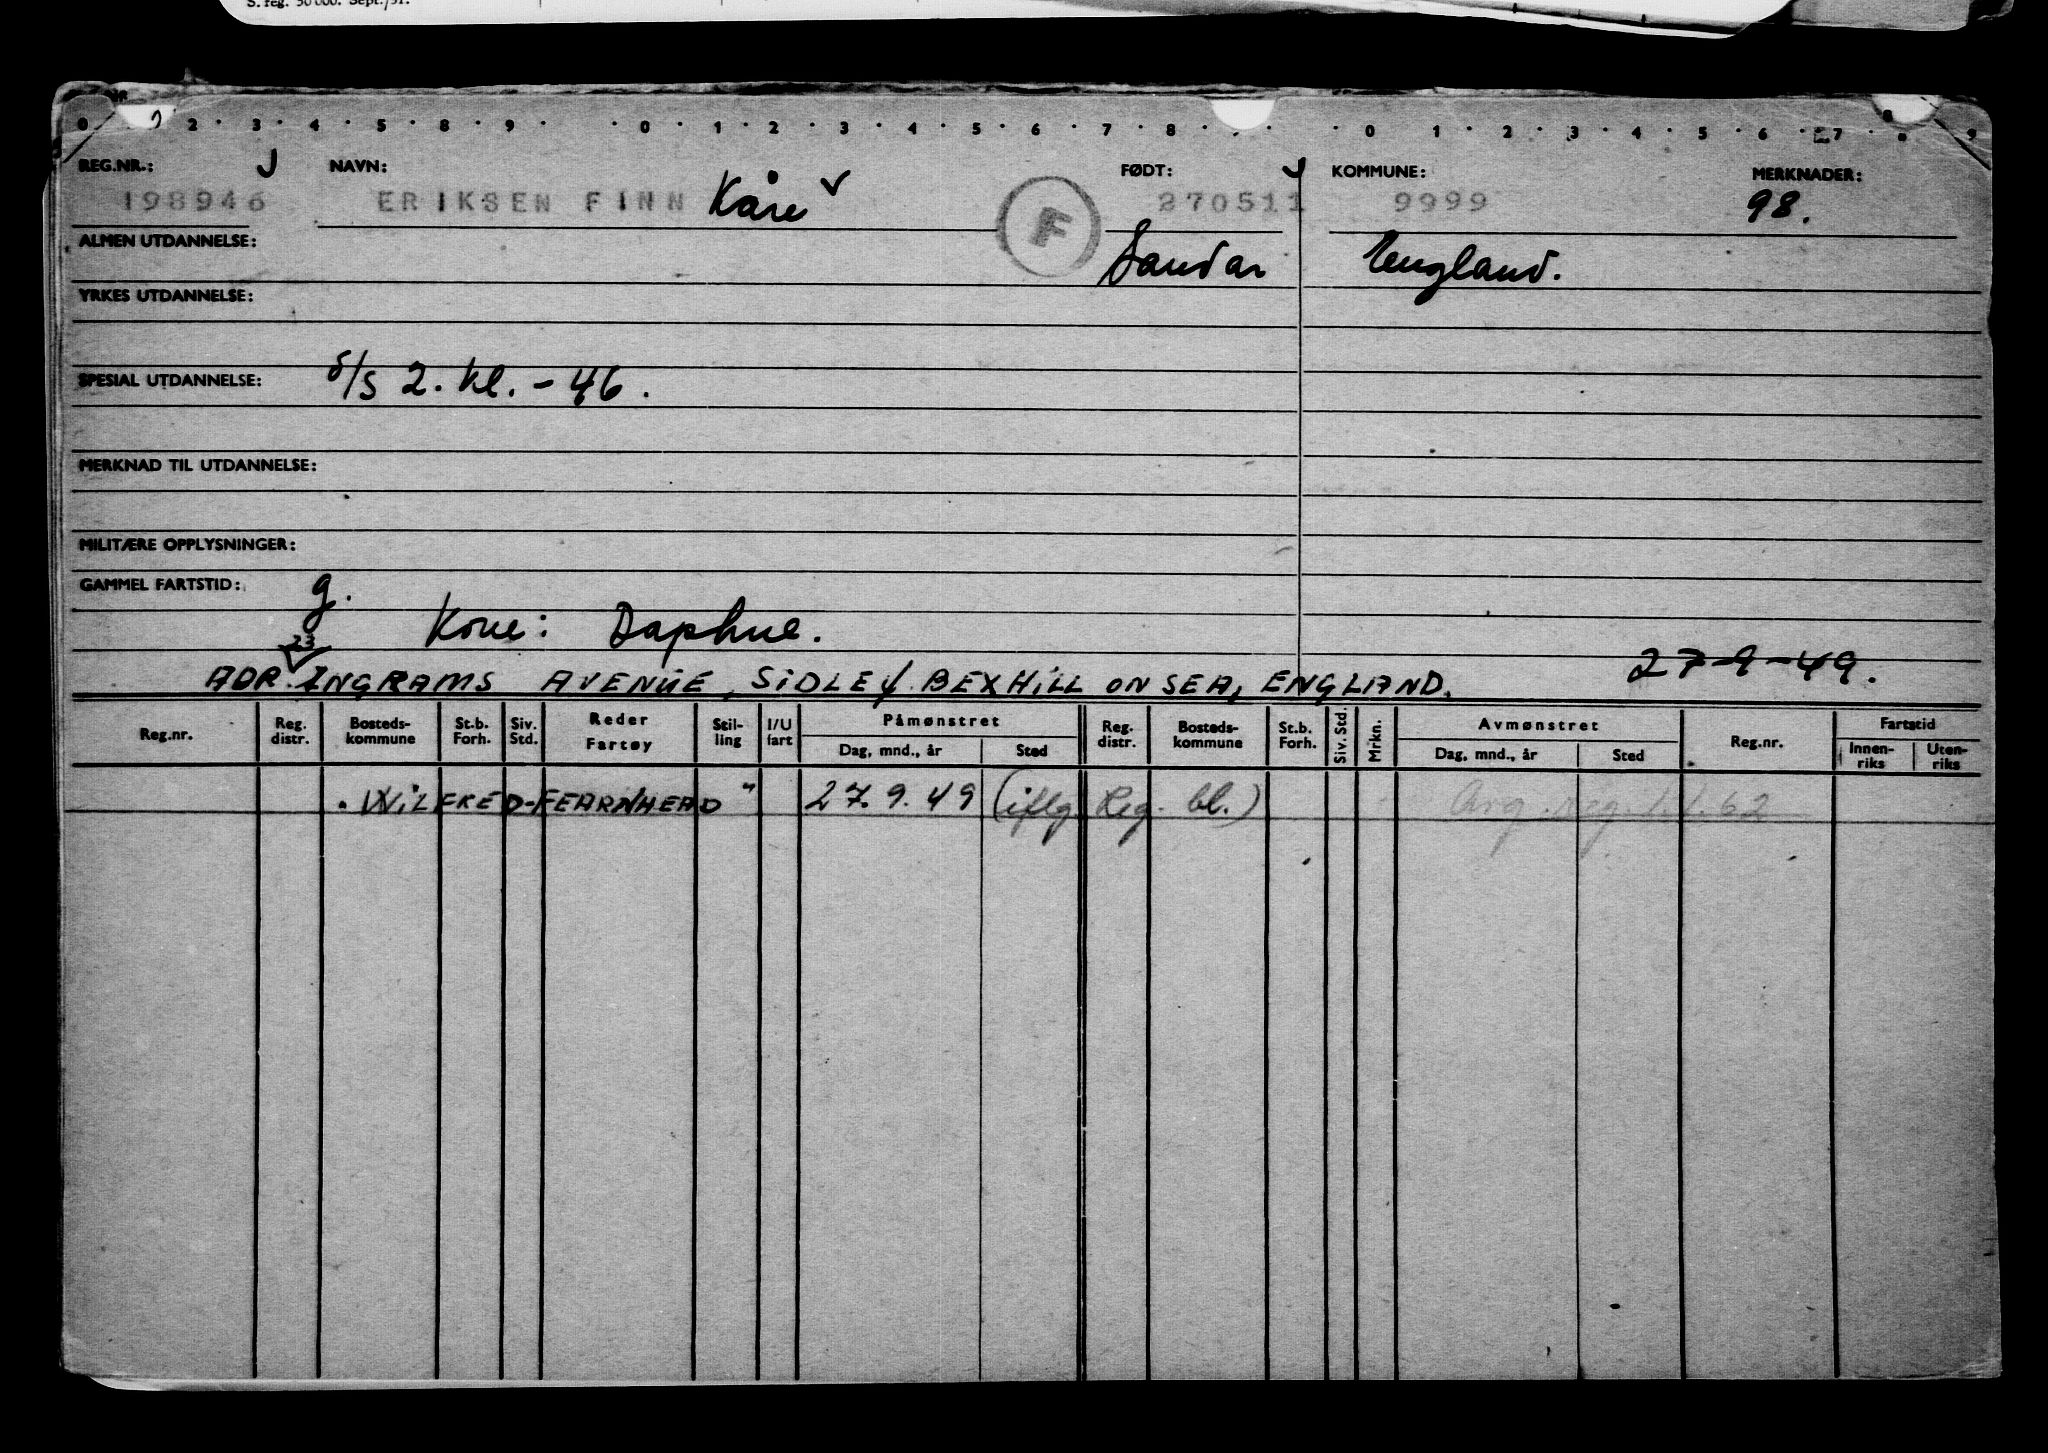 S. reg. 50 000. Sept./51.
0 2 · 3 · 4 · 5 · 8 · 9 · · 0 · 1 · 2 · 3 · 4 · 5 · 6 · 7 · 8 · · · 0 · 1 · 2 · 3 · 4 · 5 · 6 · 7 · 8 · 9
REG.NR.: NAVN: FØDT: KOMMUNE: MERKNADER:
198946 ERIKSEN FINN Kåre F 270511 9999 98.
ALMEN UTDANNELSE: Sandar England.
YRKES UTDANNELSE:
SPESIAL UTDANNELSE: s/s 2. kl. - 46.
MERKNAD TIL UTDANNELSE:
MILITÆRE OPPLYSNINGER:
GAMMEL FARTSTID: g.
Kone: Daphne.
23
ADR. INGRAMS AVENUE, SIDLEY BEXHILL ON SEA, ENGLAND. 27-9-49.
Reg.nr. Reg. distr. Bosteds-kommune St.b. Forh. Siv. Std. Reder Fartøy Stil-ling I/U fart Påmønstret Reg. distr. Bosteds-kommune St.b. Forh. Siv. Std. Mrkn. Avmønstret Reg.nr. Fartstid
Dag, mnd., år Sted Dag, mnd., år Sted Innen-riks Uten-riks
"WILFRED-FEARNHEAD" 27.9.49 (iflg. Reg. bl.) Avg. reg. 1.1.62